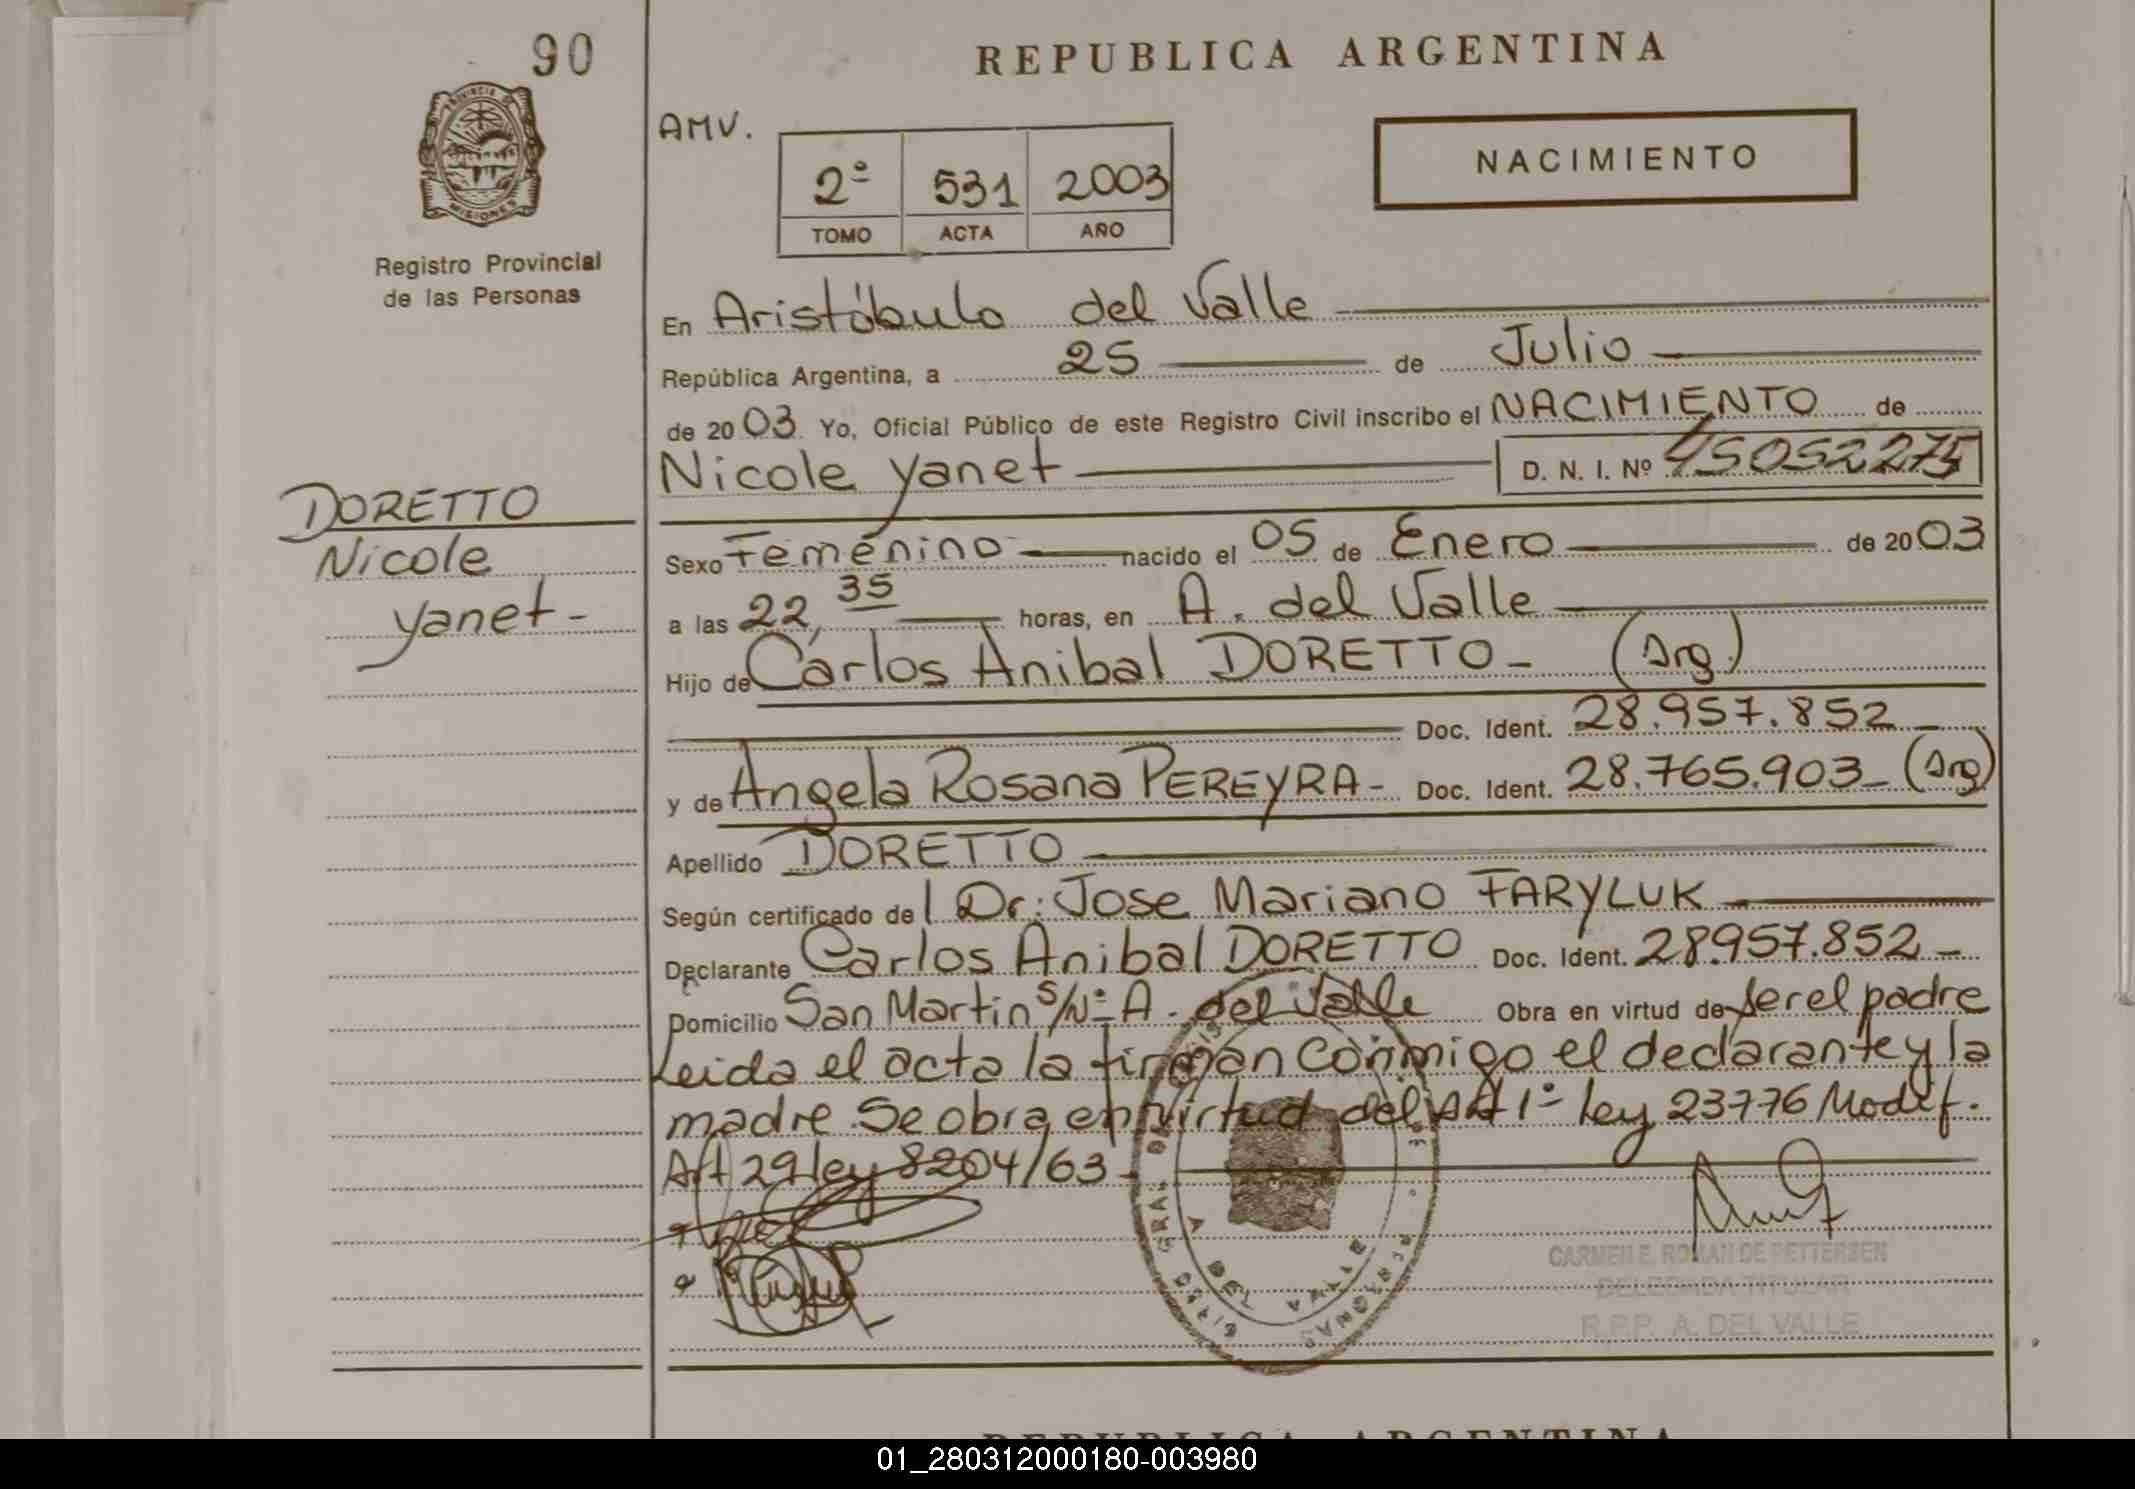 90
REPUBLICA ARGENTINA
PROVINCIA DE
MISIONES
Registro Provincial
de las Personas
AMV.
2º 531 2003
TOMO ACTA AÑO
NACIMIENTO
En Aristóbulo del Valle
República Argentina, a 25 de Julio
de 2003. Yo, Oficial Público de este Registro Civil inscribo el NACIMIENTO de
Nicole Yanet D. N. I. Nº 45052275
DORETTO
Nicole
Yanet -
Sexo Femenino nacido el 05 de Enero de 2003
a las 22,35 horas, en A. del Valle
Hijo de Carlos Anibal DORETTO - (Arg.)
Doc. Ident. 28.957.852
y de Angela Rosana PEREYRA - Doc. Ident. 28.765.903 - (Arg)
Apellido DORETTO
Según certificado del Dr: Jose Mariano FARYLUK
Declarante Carlos Anibal DORETTO Doc. Ident. 28.957.852 -
Domicilio San Martin S/Nº A. del Valle Obra en virtud de ser el padre
Leida el acta la firman conmigo el declarante y la
madre. Se obra en virtud del Art 1º Ley 23776 Modif.
Art 29 ley 8204/63 -
CARMEN E. ROMAN DE PETTERSEN
DELEGADA TITULAR
R.P.P. A. DEL VALLE
A DEL VALLE
REPUBLICA ARGENTINA
01_280312000180-003980